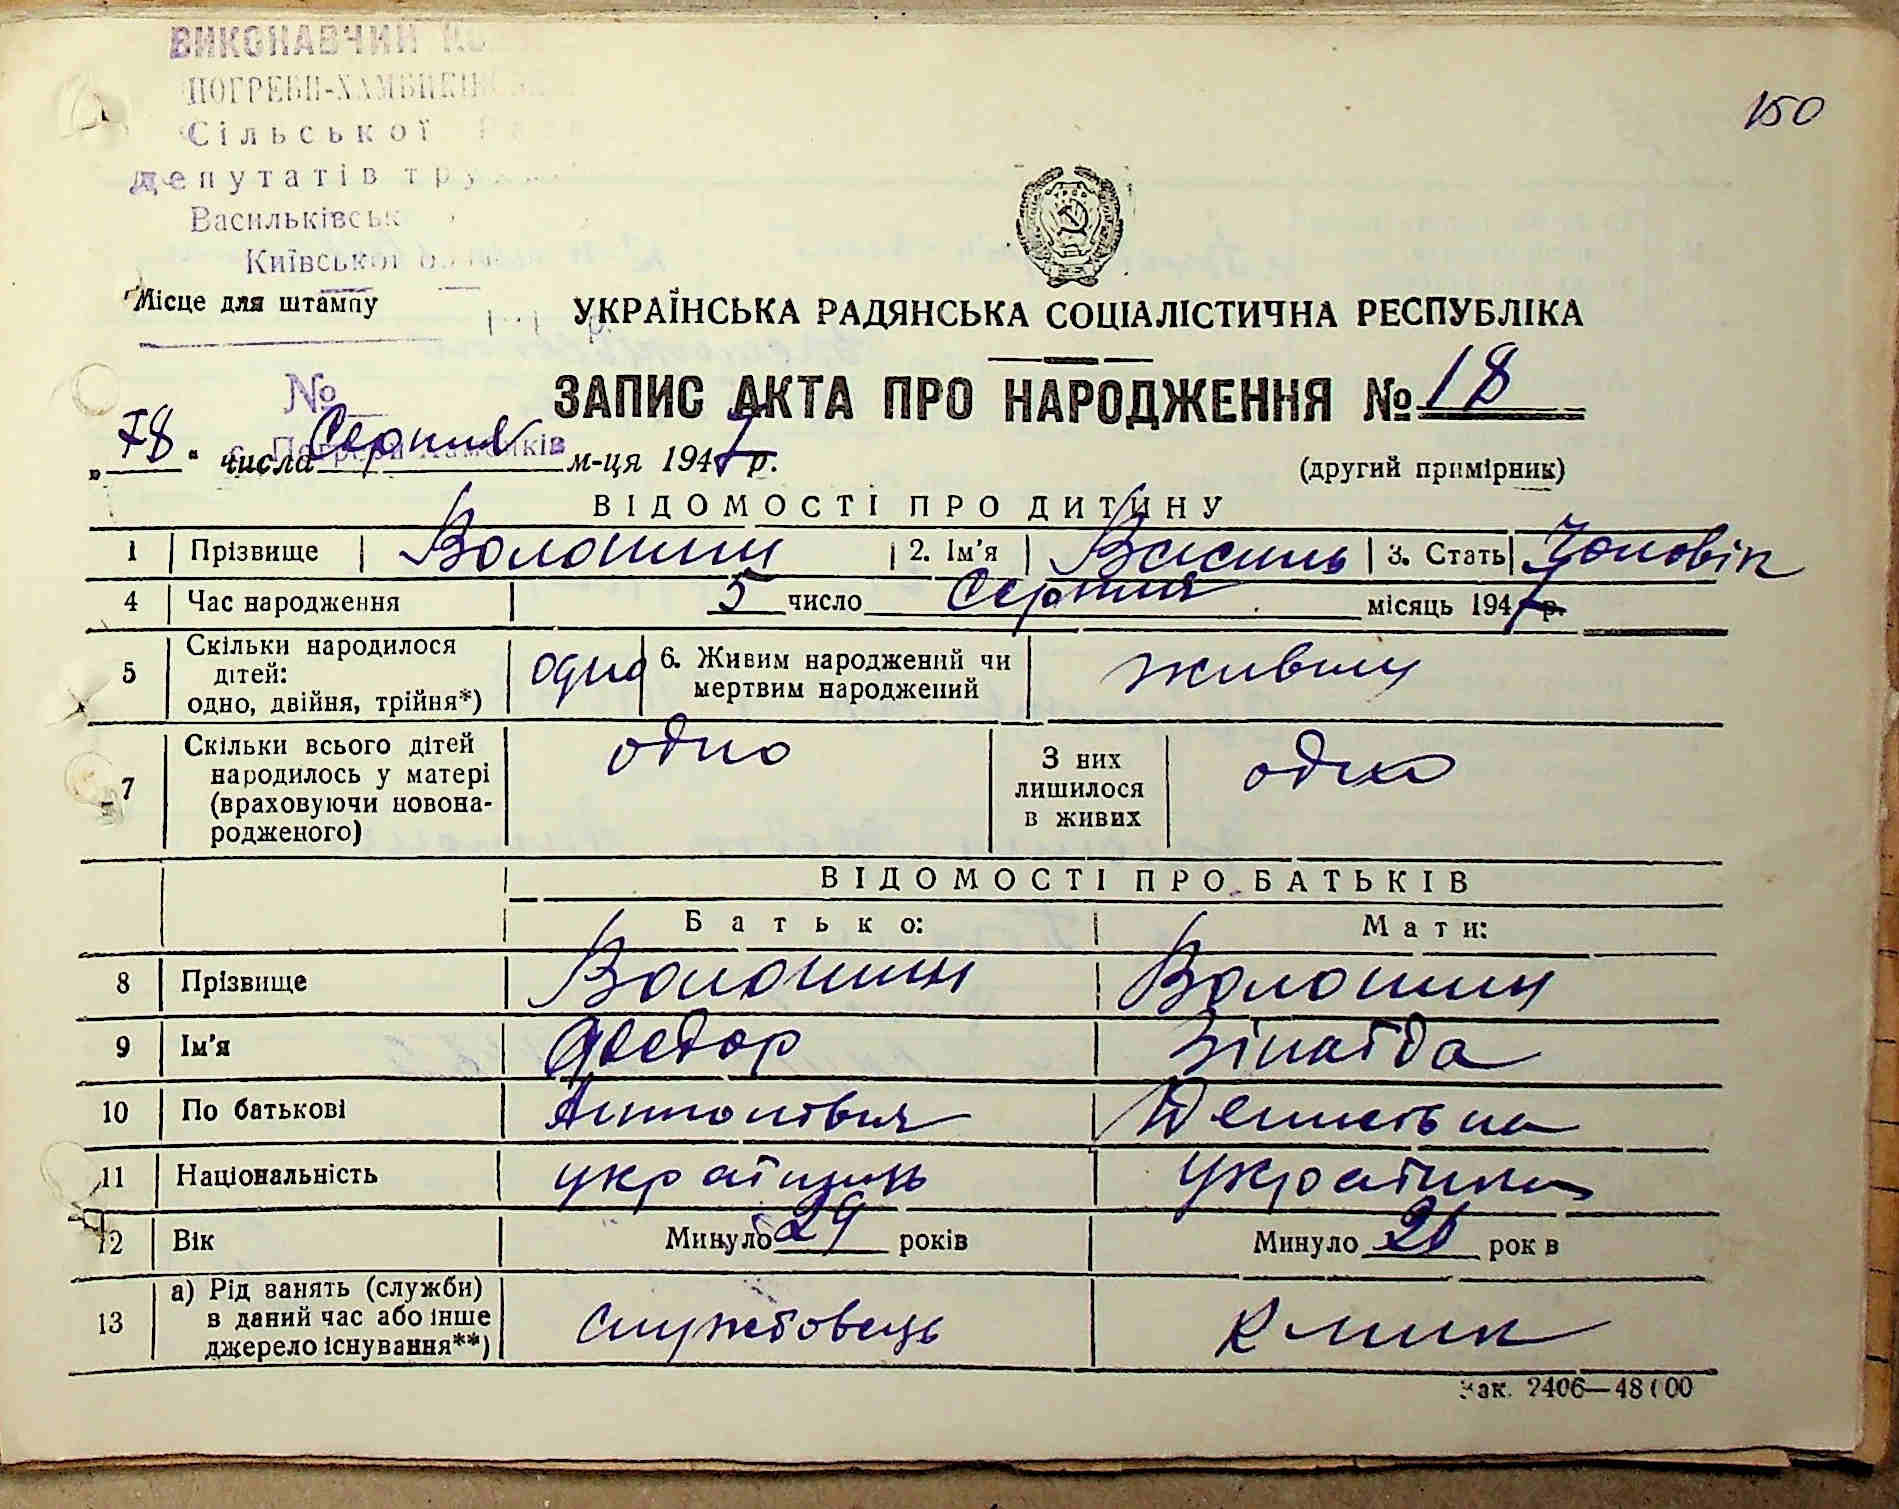 150
ВИКОНАВЧИЙ
ПОГРЕБИ-ХАМБИКІВ
Сільської Рад
депутатів тру
Васильківськ
Київської
Місце для штампу
УКРАЇНСЬКА РАДЯНСЬКА СОЦІАЛІСТИЧНА РЕСПУБЛІКА
№
ЗАПИС АКТА ПРО НАРОДЖЕННЯ № 18
„ 18 “ числа Серпня м-ця 1947 р.
(другий примірник)
ВІДОМОСТІ ПРО ДИТИНУ
1 Прізвище Волошин 2. Ім'я Василь 3. Стать Чоловік
4 Час народження 5 число Серпня місяць 1947 р.
5 Скільки народилося дітей: одно, двійня, трійня*) одно 6. Живим народжений чи мертвим народжений живим
7 Скільки всього дітей народилось у матері (враховуючи новонародженого) одно З них лишилося в живих одно
ВІДОМОСТІ ПРО БАТЬКІВ
Батько: Мати:
8 Прізвище Волошин Волошин
9 Ім'я Федор Зінаїда
10 По батькові Антонович Денисівна
11 Національність українець українка
12 Вік Минуло 29 років Минуло років
13 а) Рід занять (служби) в даний час або інше джерело існування**) службовець
Зак. 2406—48000